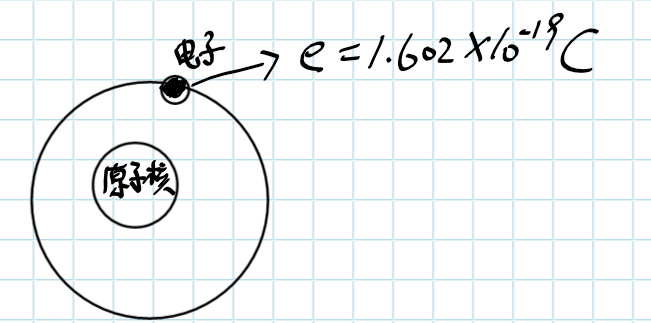 电子
e=1.602×10⁻¹⁹C
原子核